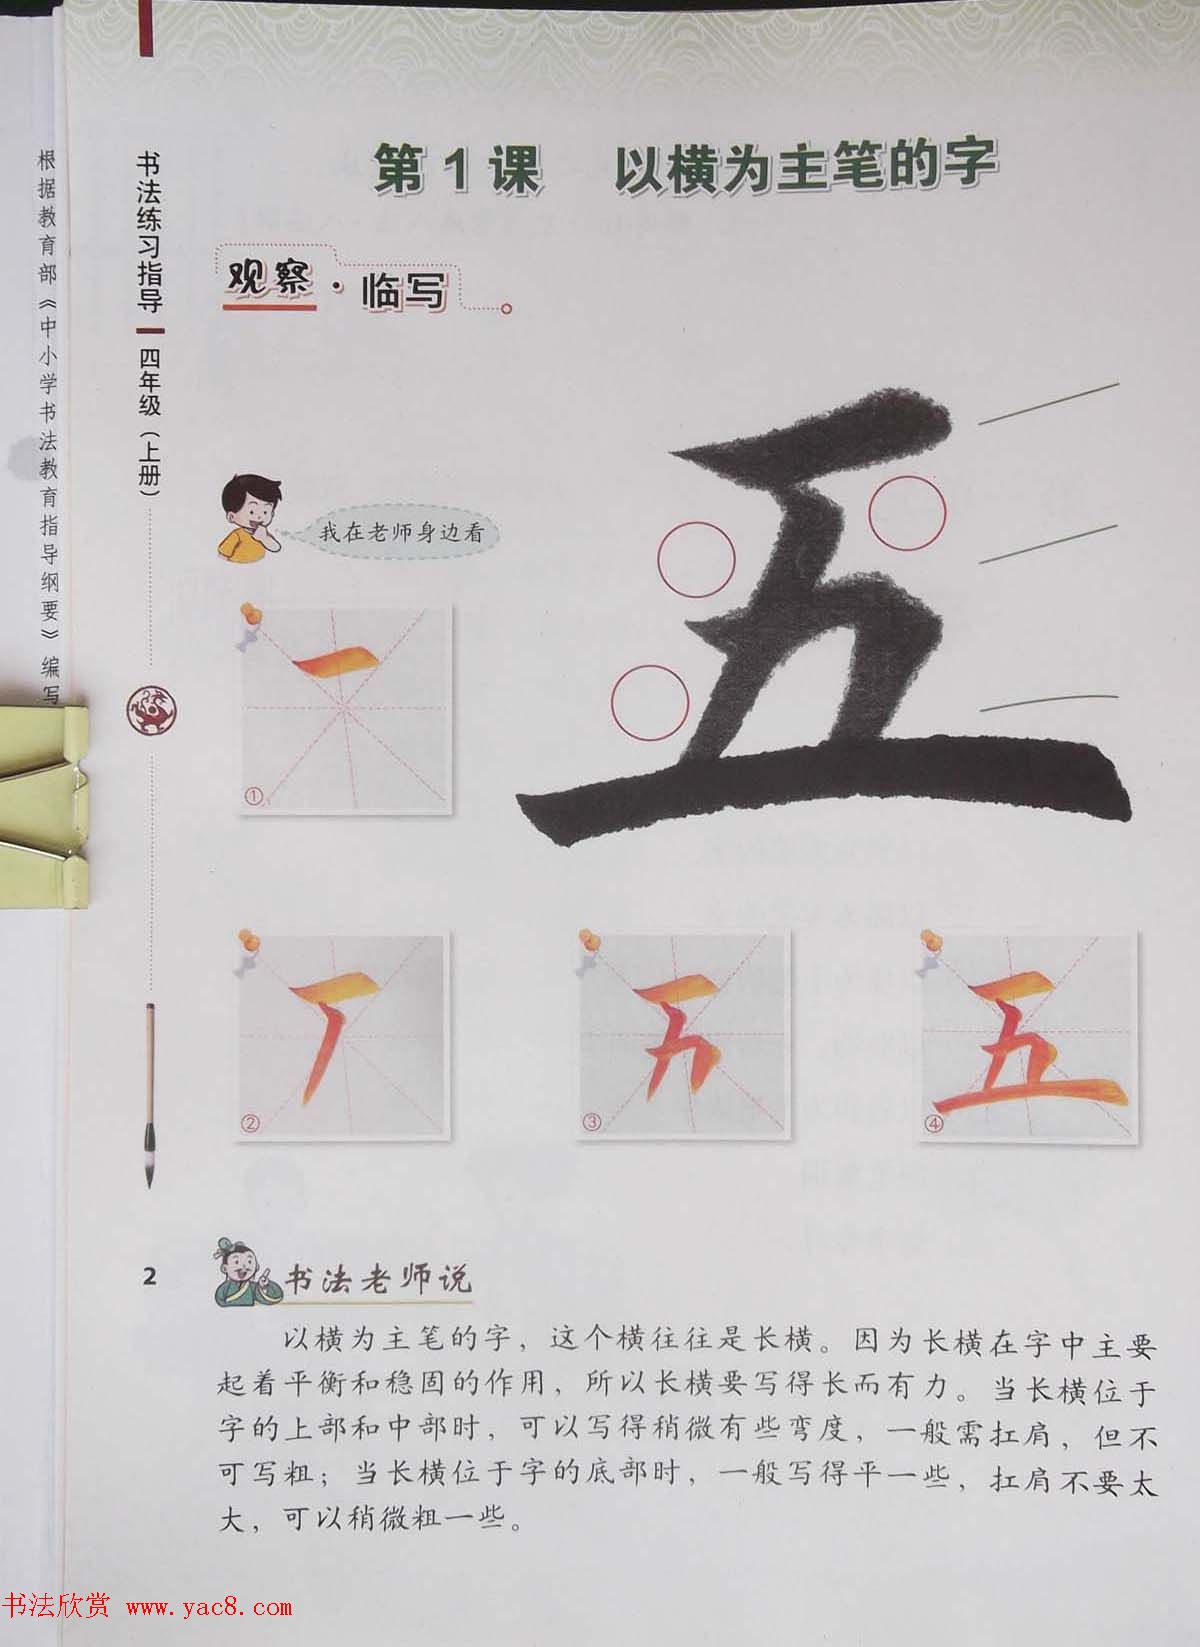 第1课 以横为主笔的字
观察·临写
根据教育部《中小学书法教育指导纲要》编写
书法练习指导
四年级(上册)
我在老师身边看
五
①
②
③
④
2
书法老师说
以横为主笔的字，这个横往往是长横。因为长横在字中主要
起着平衡和稳固的作用，所以长横要写得长而有力。当长横位于
字的上部和中部时，可以写得稍微有些弯度，一般需扛肩，但不
可写粗；当长横位于字的底部时，一般写得平一些，扛肩不要太
大，可以稍微粗一些。
书法欣赏 www.yac8.com